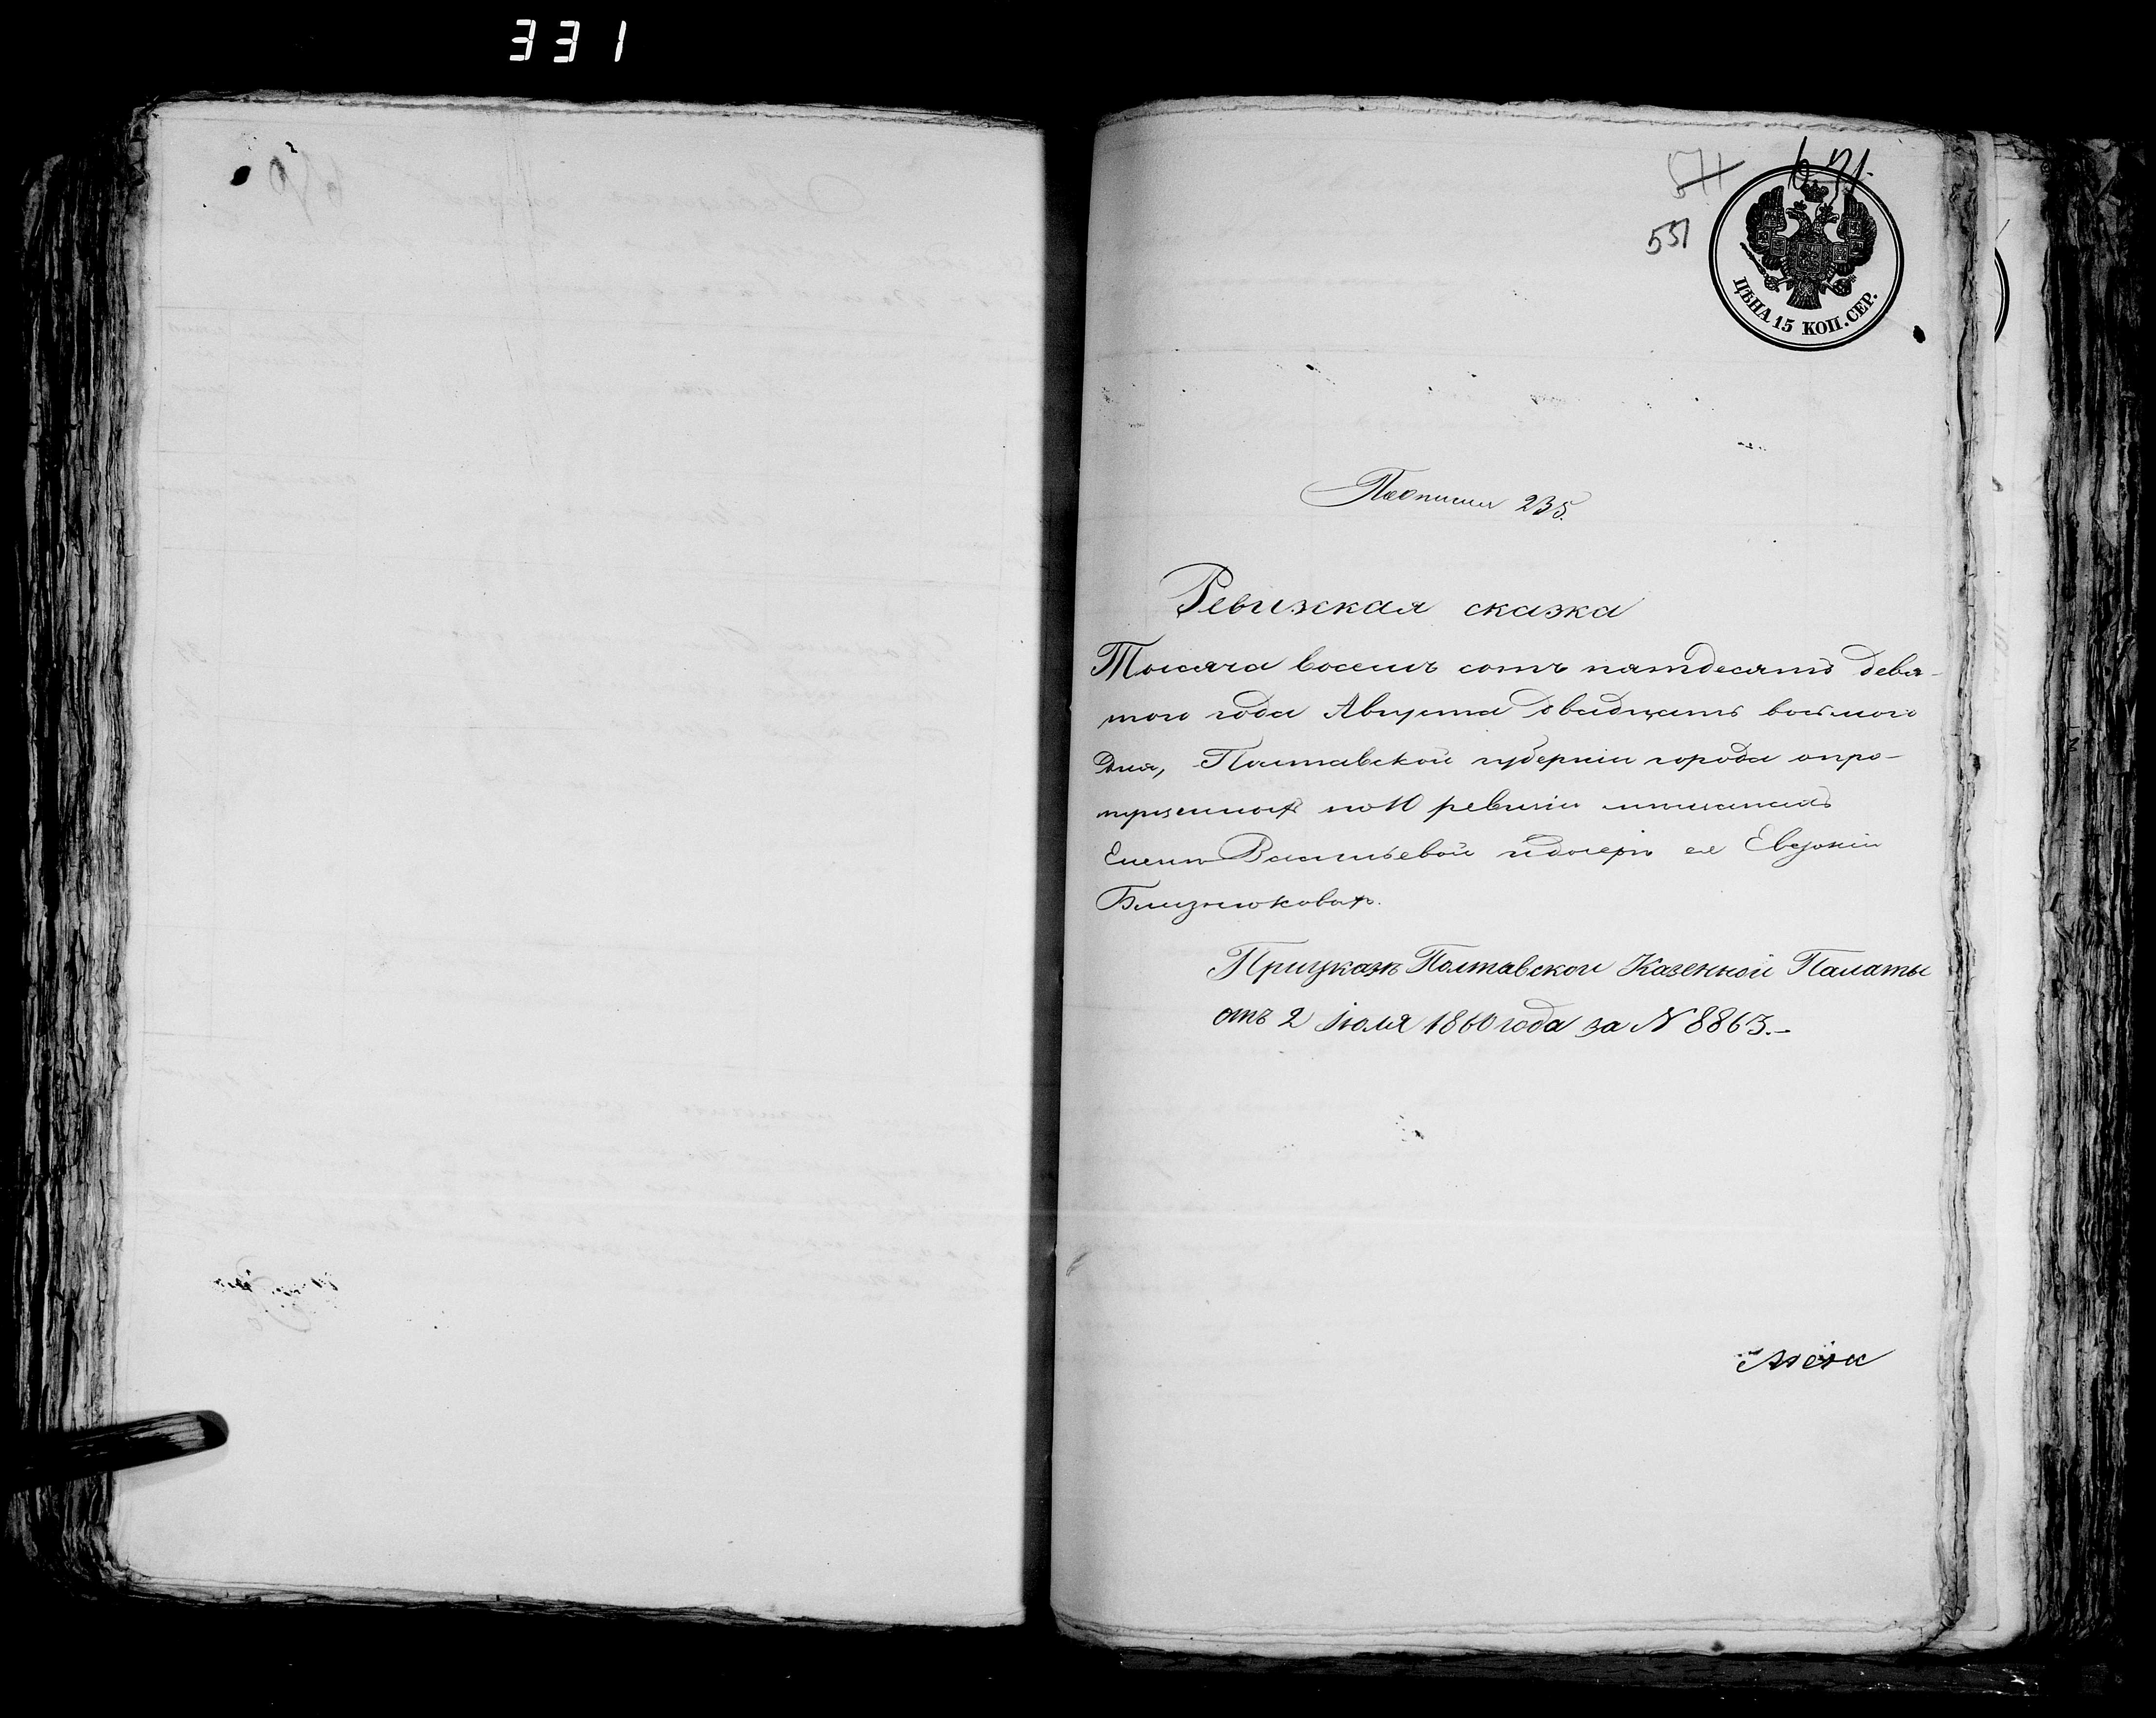 331
571
551
ЦѢНА 15 КОП. СЕР.
По описи 235.
Ревизская сказка
Тысяча восемь сотъ пятдесятъ девя-
таго года Августа двадцать восьмого
дня, Полтавской губерніи города о про-
пущенныхъ по 10 ревизіи мѣщанкахъ
Еленѣ Васильевой и дочери ея Евдокіи
Близнюковых.
При указѣ Полтавской Казенной Палаты
отъ 2 Іюля 1860 года за N 8863.-